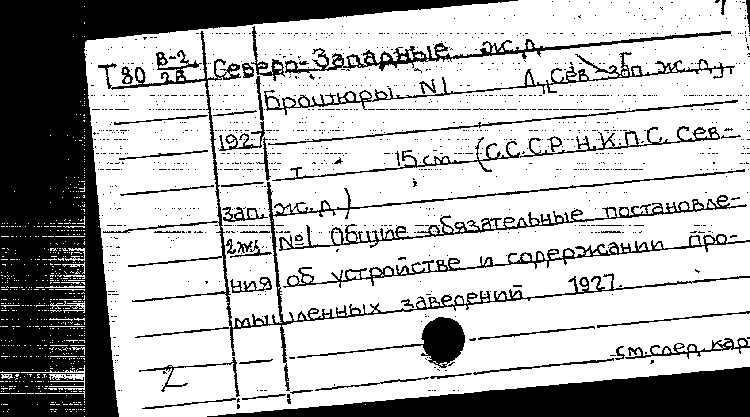 1
Т80 В-2/2В Северо-Западные ж.д.
Брошюры. N1 Л, Сев-зап. ж.д.,
1927
т. 15 см. (С.С.С.Р. Н.К.П.С. Сев-
зап. ж.д.)
2экз. №1 Общие обязательные постановле-
ния об устройстве и содержании про-
мышленных заведений. 1927.
см. след. карт
2